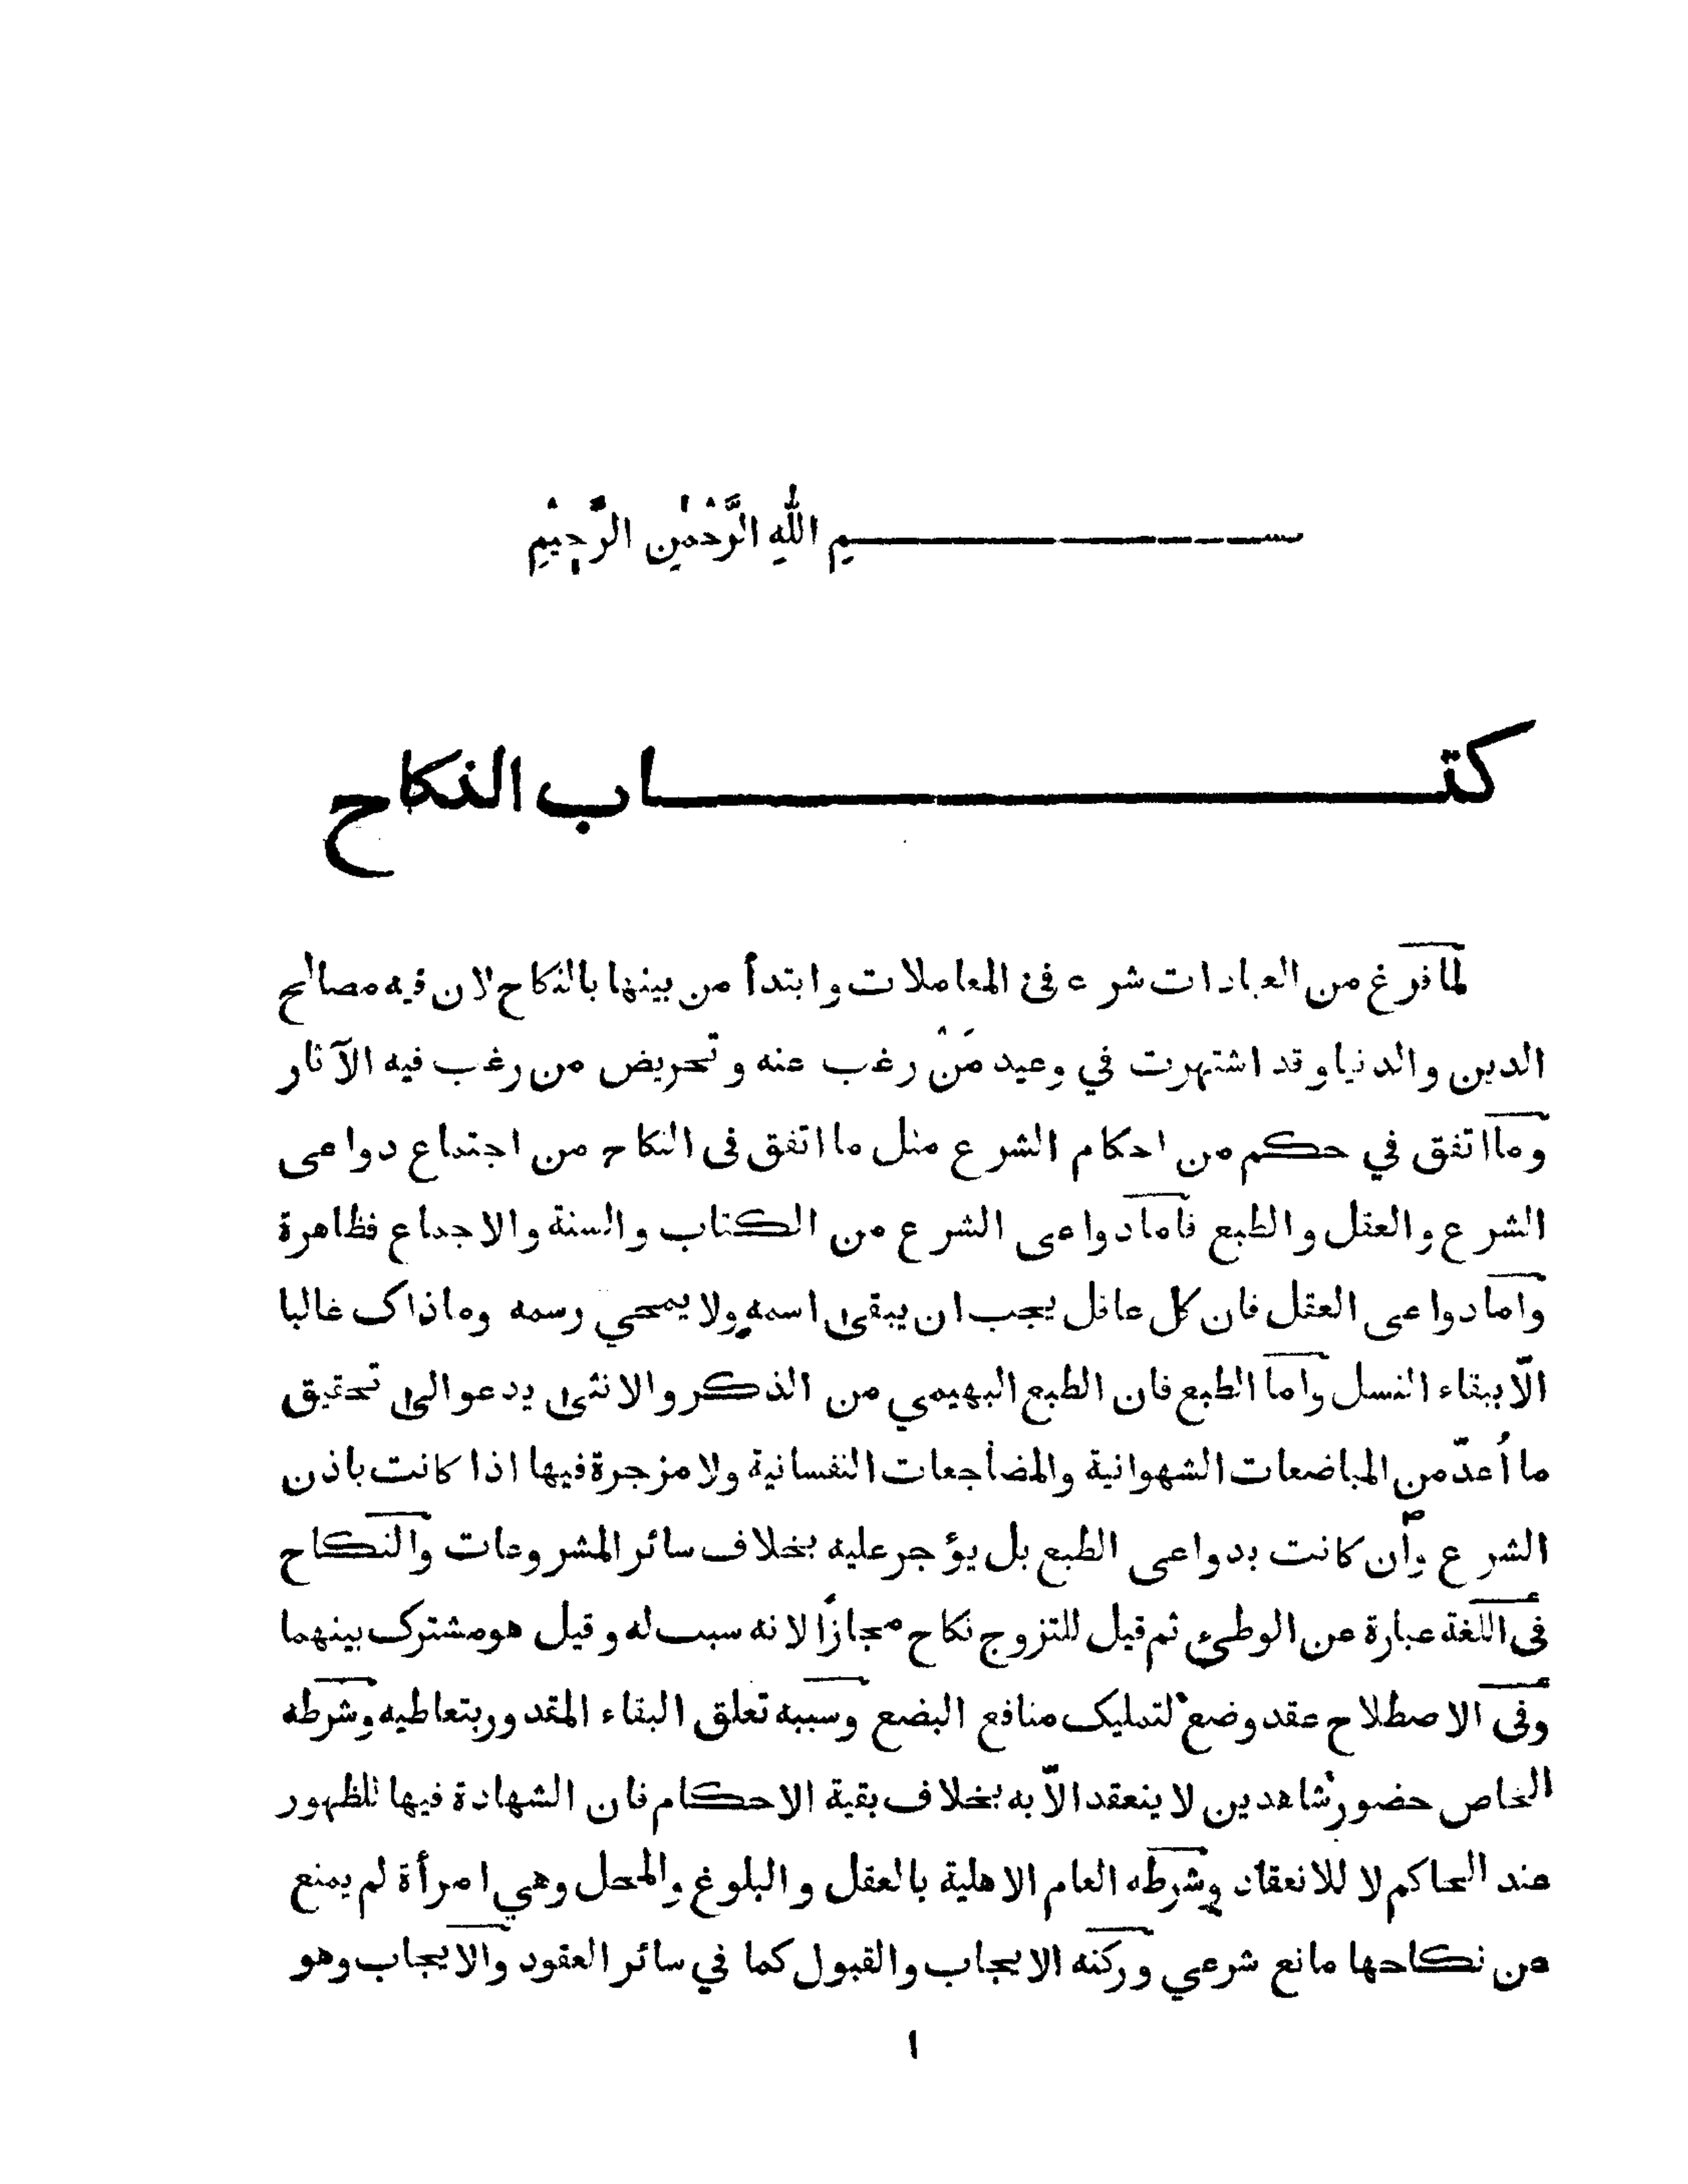 بســـــم اللهِ الرَّحْمٰنِ الرَّحِيْمِ
كتـــــاب النكاح
لما فرغ من العبادات شرع فى المعاملات وابتدأ من بينها بالنكاح لان فيه مصالح
الدين والدنيا وقد اشتهرت في وعيد مَنْ رغب عنه وتحريض من رغب فيه الآثار
وما اتفق في حكم من احكام الشرع مثل ما اتفق فى النكاح من اجتماع دواعى
الشرع والعقل والطبع فاما دواعى الشرع من الكتاب والسنة والاجماع فظاهرة
واما دواعى العقل فان كل عاقل يجب ان يبقى اسمه ولا يمحي رسمه وماذاك غالبا
الّا ببقاء النسل واما الطبع فان الطبع البهيمي من الذكر والانثى يدعو الى تحقيق
ما أُعدّ من المباضعات الشهوانية والمضاجعات النفسانية ولا مزجرة فيها اذا كانت باذن
الشرع وأن كانت بدواعى الطبع بل يؤجر عليه بخلاف سائر المشروعات والنكاح
فى اللغة عبارة عن الوطئ ثم قيل للتزوج نكاح مجازًا لانه سبب له وقيل هو مشترك بينهما
وفى الاصطلاح عقد وضع لتمليك منافع البضع وسببه تعلق البقاء المقدور بتعاطيه وشرطه
الخاص حضور شاهدين لا ينعقد الّا به بخلاف بقية الاحكام فان الشهادة فيها للظهور
عند الحاكم لا للانعقاد وشرطه العام الاهلية بالعقل والبلوغ والمحل وهي امرأة لم يمنع
من نكاحها مانع شرعي وركنه الايجاب والقبول كما في سائر العقود والايجاب وهو
١